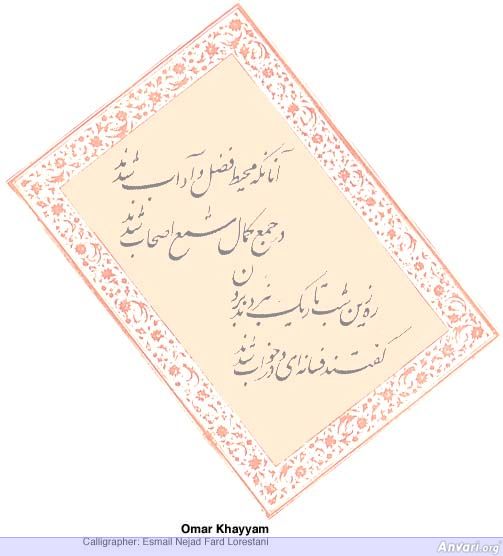 آنانکه محیط فضل و آداب شدند
در جمع کمال شمع اصحاب شدند
ره زین شب تاریک نبردند برون
گفتند فسانه‌ای و در خواب شدند
Omar Khayyam
Calligrapher: Esmail Nejad Fard Lorestani
Anvari.org